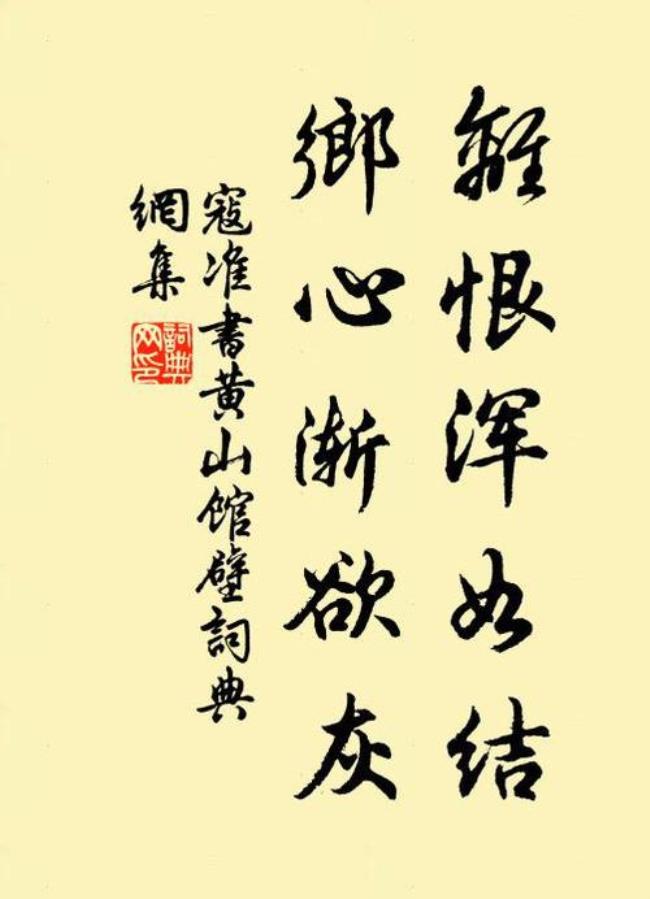 離恨浑如结
鄉心渐欲灰
寇准書黄山館壁詞典
網集
詞典
网印